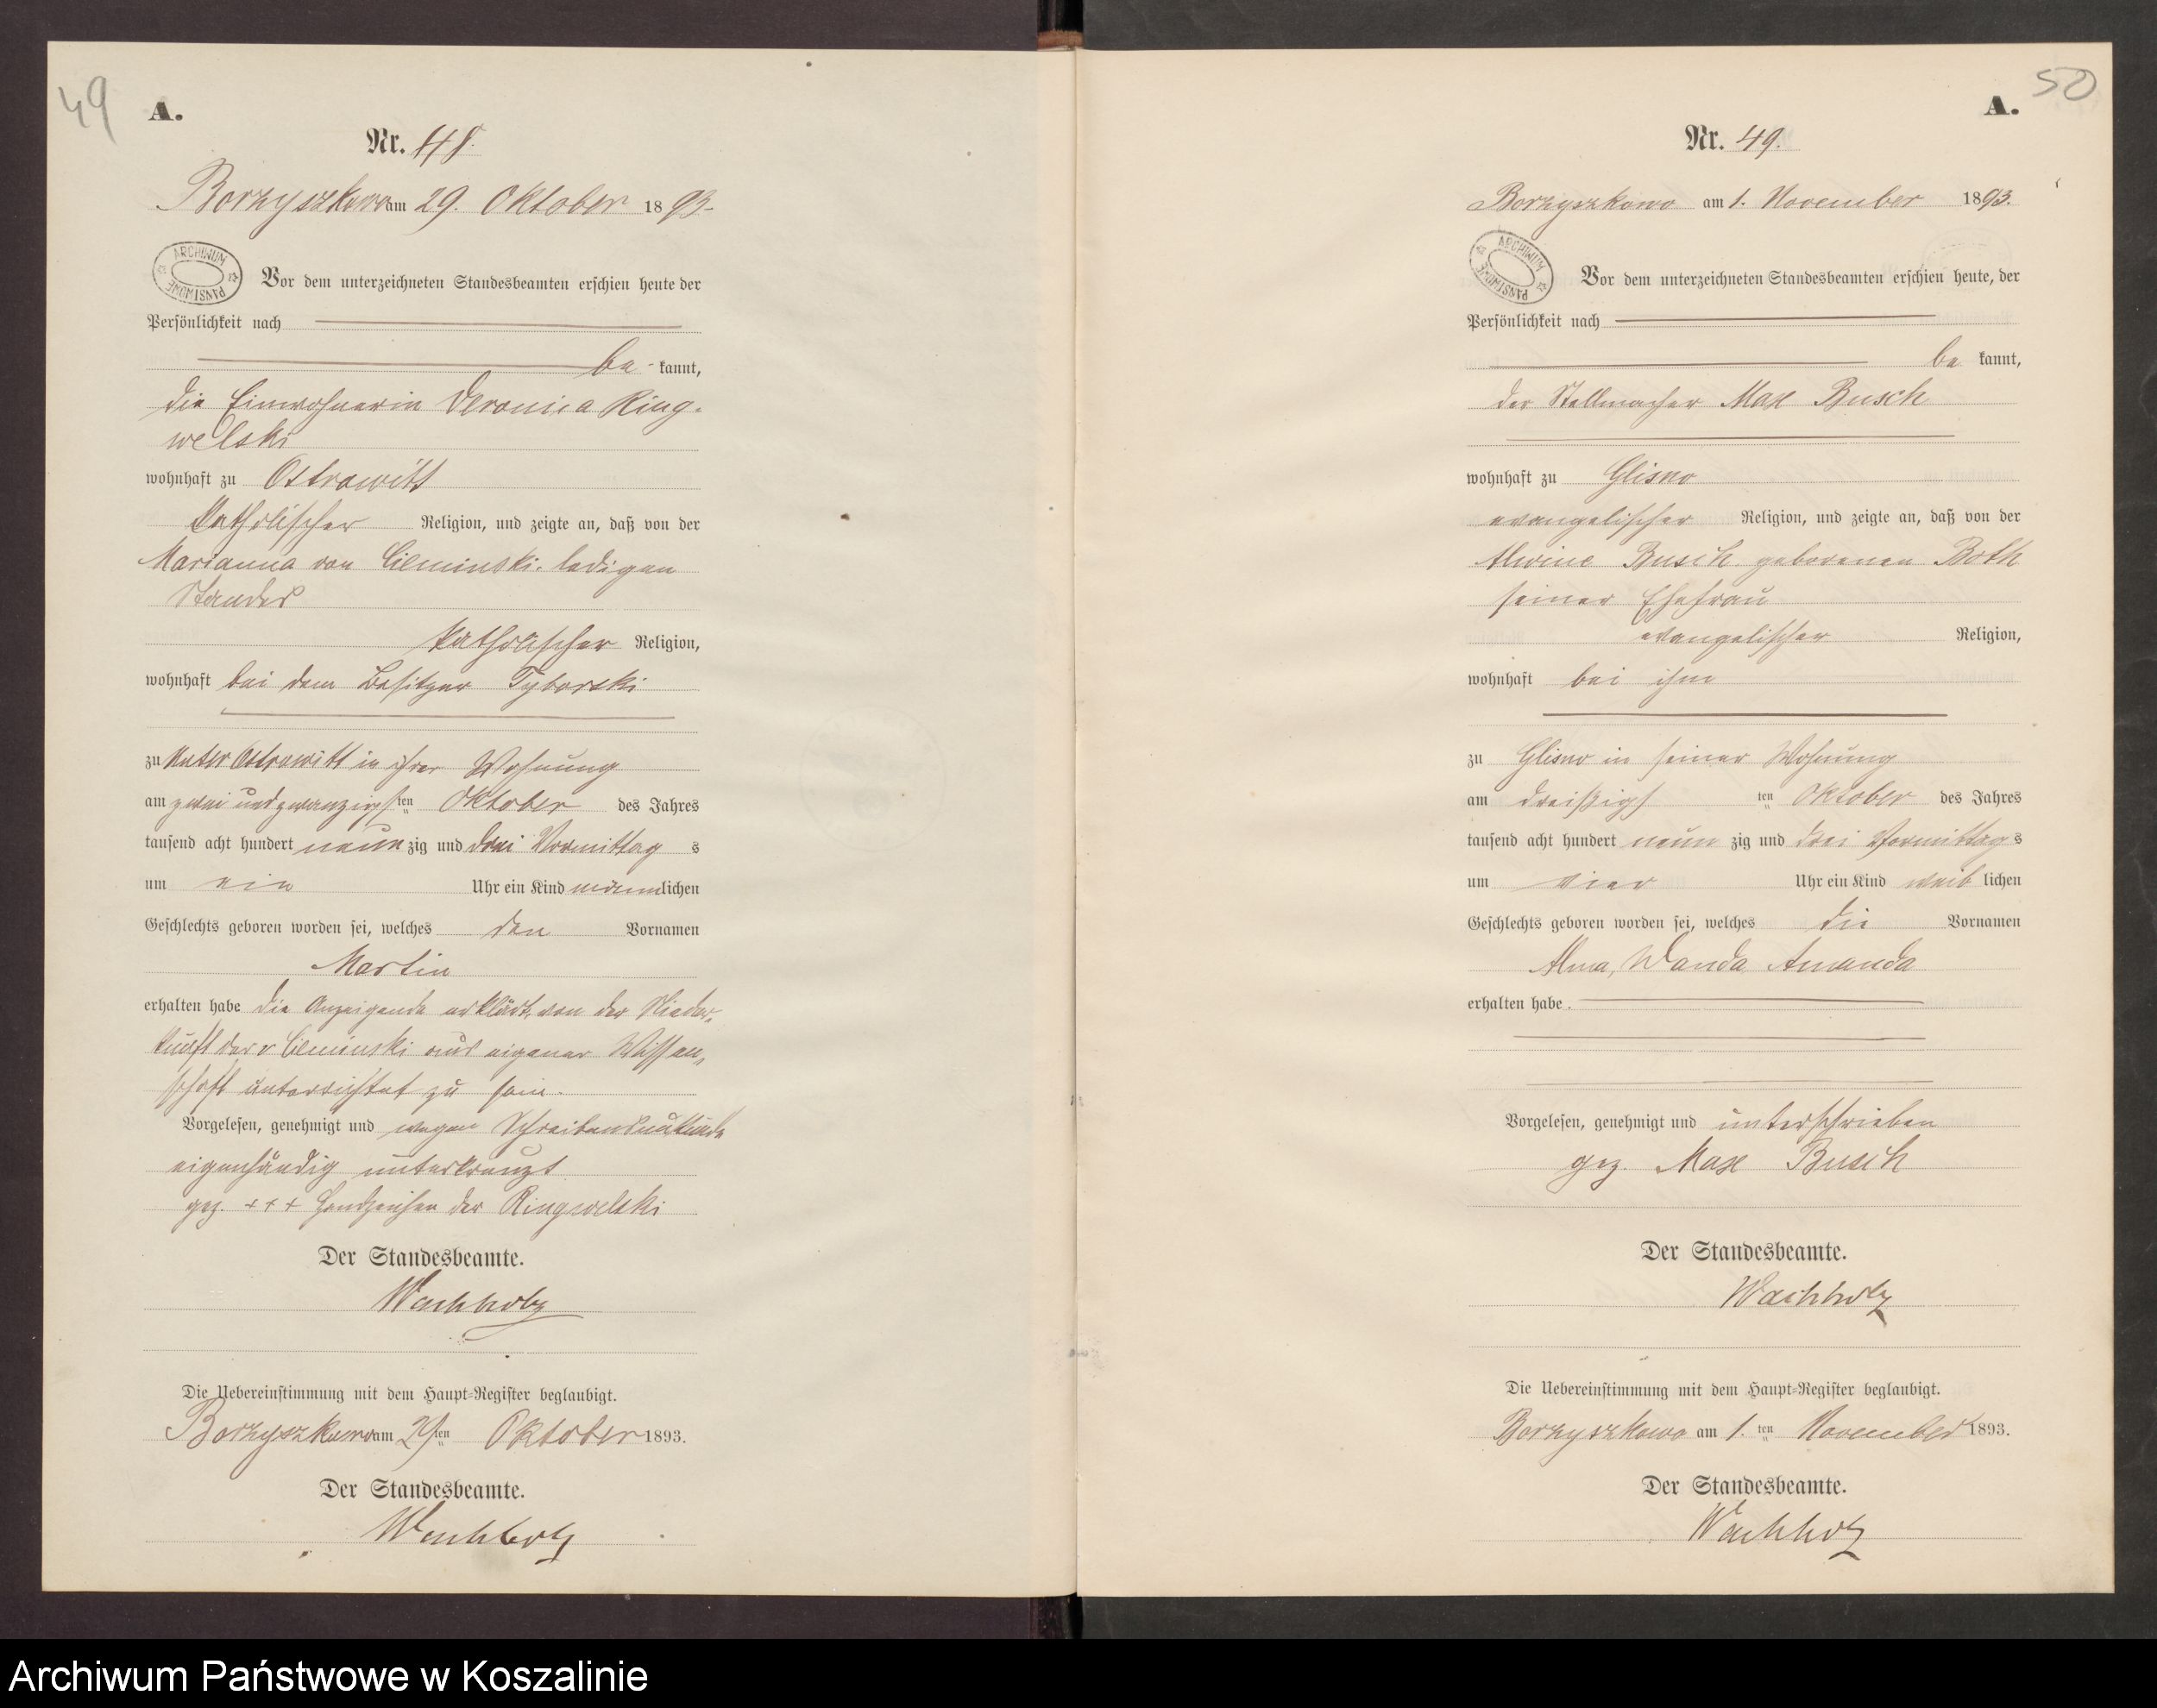 49
A.
Nr. 48.
Borzyszkowo am 29. Oktober 1893.
ARCHIWUM PAŃSTWOWE
Vor dem unterzeichneten Standesbeamten erschien heute der
Persönlichkeit nach
be kannt,
die Einwohnerin Veronica Ring-
welski
wohnhaft zu Ostrowitt
katholischer Religion, und zeigte an, daß von der
Marianna von Cieminski, ledigen
Standes
katholischer Religion,
wohnhaft bei dem Besitzer Tyborski
zu Unter Ostrowitt in ihrer Wohnung
am zwei und zwanzigsten Oktober des Jahres
tausend acht hundert neunzig und drei Vormittags
um ein Uhr ein Kind männlichen
Geschlechts geboren worden sei, welches den Vornamen
Martin
erhalten habe die Anzeigende erklärt, von der Nieder-
kunft der v Cieminski aus eigener Wissen-
schaft unterrichtet zu sein.
Vorgelesen, genehmigt und wegen Schreibensunkunde
eigenhändig unterkreuzt
gez. +++ Handzeichen der Ringwelski
Der Standesbeamte.
Wachholz
Die Uebereinstimmung mit dem Haupt-Register beglaubigt.
Borzyszkowo am 29ten Oktober 1893.
Der Standesbeamte.
Wachholz
50
A.
Nr. 49.
Borzyszkowo am 1. November 1893.
ARCHIWUM PAŃSTWOWE
Vor dem unterzeichneten Standesbeamten erschien heute, der
Persönlichkeit nach
be kannt,
der Stellmacher Max Busch
wohnhaft zu Glisno
evangelischer Religion, und zeigte an, daß von der
Alwine Busch geborenen Both
seiner Ehefrau
evangelischer Religion,
wohnhaft bei ihm
zu Glisno in seiner Wohnung
am dreißigsten Oktober des Jahres
tausend acht hundert neunzig und drei Vormittags
um vier Uhr ein Kind weiblichen
Geschlechts geboren worden sei, welches die Vornamen
Alma, Wanda Amanda
erhalten habe.
Vorgelesen, genehmigt und unterschrieben
gez. Max Busch
Der Standesbeamte.
Wachholz
Die Uebereinstimmung mit dem Haupt-Register beglaubigt.
Borzyszkowo am 1.ten November 1893.
Der Standesbeamte.
Wachholz
Archiwum Państwowe w Koszalinie